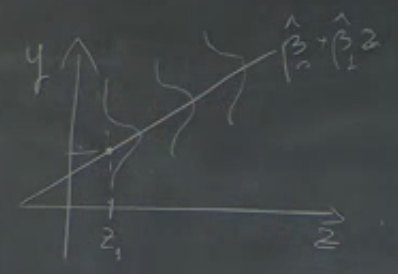 y
β̂₀ + β̂₁ z
z₁
z